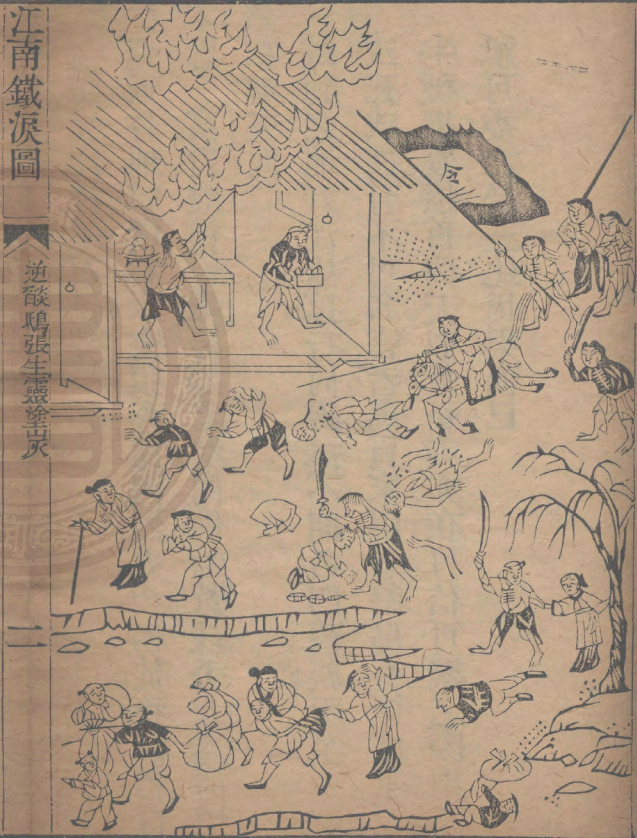 江南鐵淚圖
逆燄鴟張生靈塗炭
二